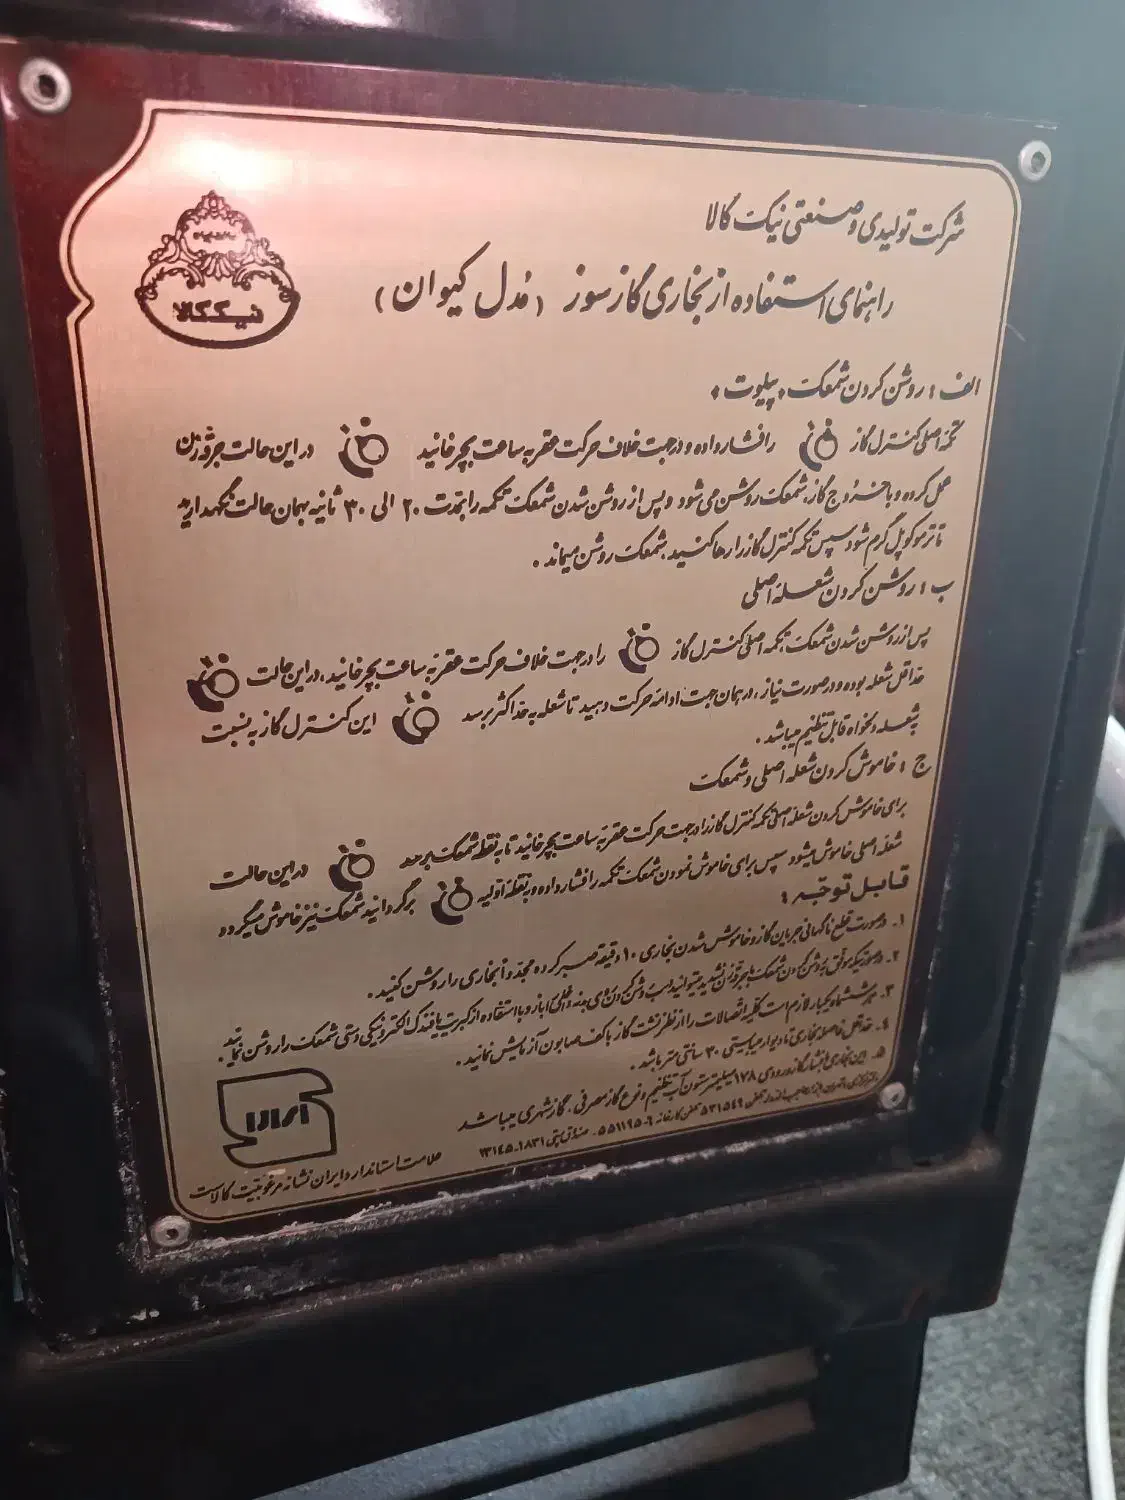 شرکت تولیدی و صنعتی نیک کالا
نیک کالا
راهنمای استفاده از بخاری گاز سوز (مدل کیوان)
الف : روشن کردن شمعک «پیلوت»
تکمه اصلی کنترل گاز را فشار داده و در جهت خلاف حرکت عقربه ساعت بچرخانید در این حالت جرقه زن
عمل کرده و با خروج گاز، شمعک روشن می شود و پس از روشن شدن شمعک تکمه را بمدت ۲۰ الی ۳۰ ثانیه بهمان حالت نگهدارید
تا ترموکوپل گرم شود سپس تکمه کنترل گاز را رها کنید. شمعک روشن میماند .
ب : روشن کردن شعله اصلی
پس از روشن شدن شمعک، تکمه اصلی کنترل گاز را در جهت خلاف حرکت عقربه ساعت بچرخانید، در این حالت
حداقل شعله بوده و در صورت نیاز، در همان جهت ادامه حرکت دهید تا شعله به حداکثر برسد این کنترل گاز به نسبت
شعله دلخواه قابل تنظیم میباشد .
ج : خاموش کردن شعله اصلی و شمعک
برای خاموش کردن شعله اصلی تکمه کنترل گاز را در جهت حرکت عقربه ساعت بچرخانید تا به نقطه شمعک برسد در این حالت
شعله اصلی خاموش میشود سپس برای خاموش نمودن شمعک تکمه را فشار داده و به نقطه اولیه برگردانید شمعک نیز خاموش میگردد
قابل توجه :
۱. در صورت قطع ناگهانی جریان گاز و خاموش شدن بخاری ۱۰ دقیقه صبر کرده مجدداً بخاری را روشن کنید .
۲. در صورتیکه موفق به روشن کردن شمعک با جرقه زن نشدید میتوانید درب روی بدنه را باز و با استفاده از کبریت یا فندک الکترونیکی دستی شمعک را روشن نمائید .
۳. هر ششماه یکبار لازم است کلیه اتصالات را از نظر نشت گاز با کف صابون آزمایش نمائید .
۴. حداقل فاصله بخاری تا دیوار میبایستی ۳۰ سانتی متر باشد .
۵. این بخاری با فشار گاز ورودی ۱۷۸ میلیمتر ستون آب تنظیم و نوع گاز مصرفی ، گاز شهری میباشد
تلفن ۵۳۱۵۴۹ تلفن کارخانه ۶-۵۵۱۱۹۵ - صندوق پستی ۱۸۳۱-۱۳۱۴۵
علامت استاندارد ایران نشانه مرغوبیت کالاست